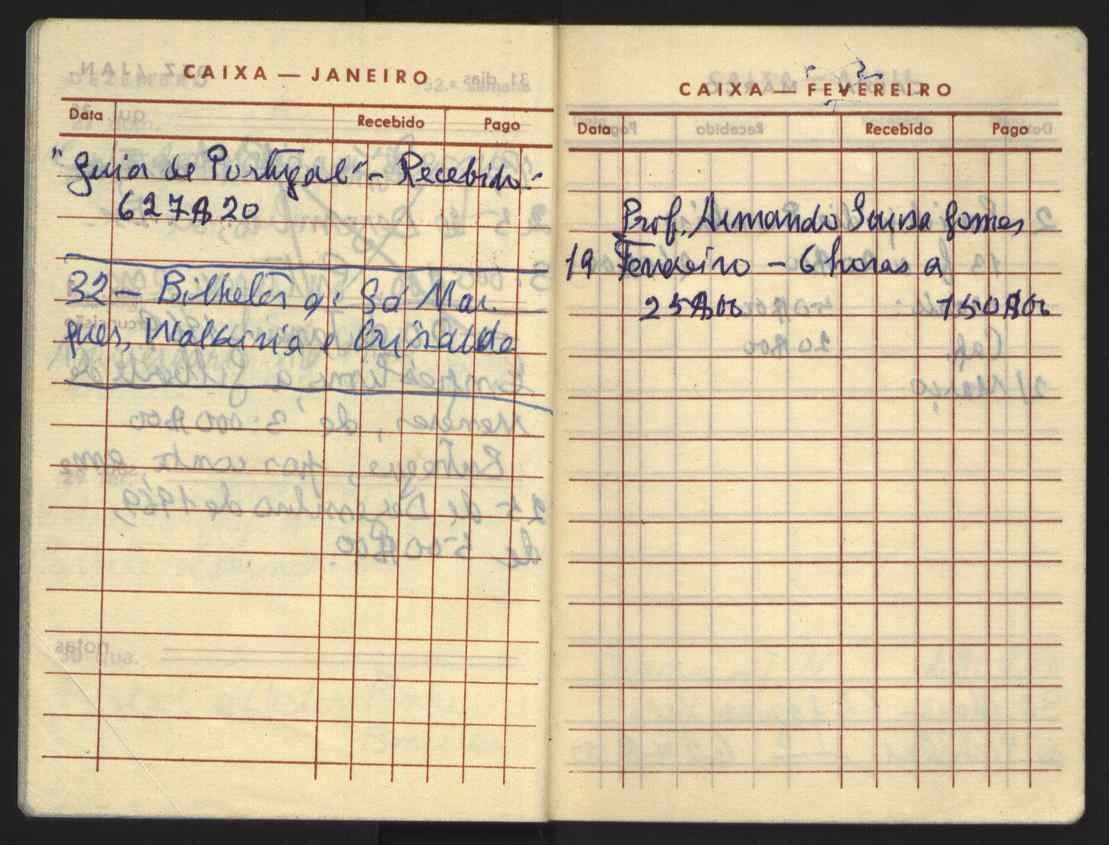 CAIXA — JANEIRO
Data Recebido Pago
"Guia de Portugal" - Recebido:-
627$20
32 - Bilhetes
ques, Walkiria e
CAIXA — FEVEREIRO
Data Recebido Pago
Prof. Armando Sousa Gomes
19 Fevereiro - 6 horas a
25$00 150$00